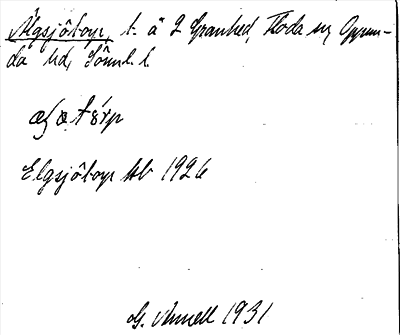 Älgsjötorp, t. å 2 Granhed, Floda sn, Oppun-
da hd, Söml. l.
Elgsjötorp Hb 1926
G. Annell 1931